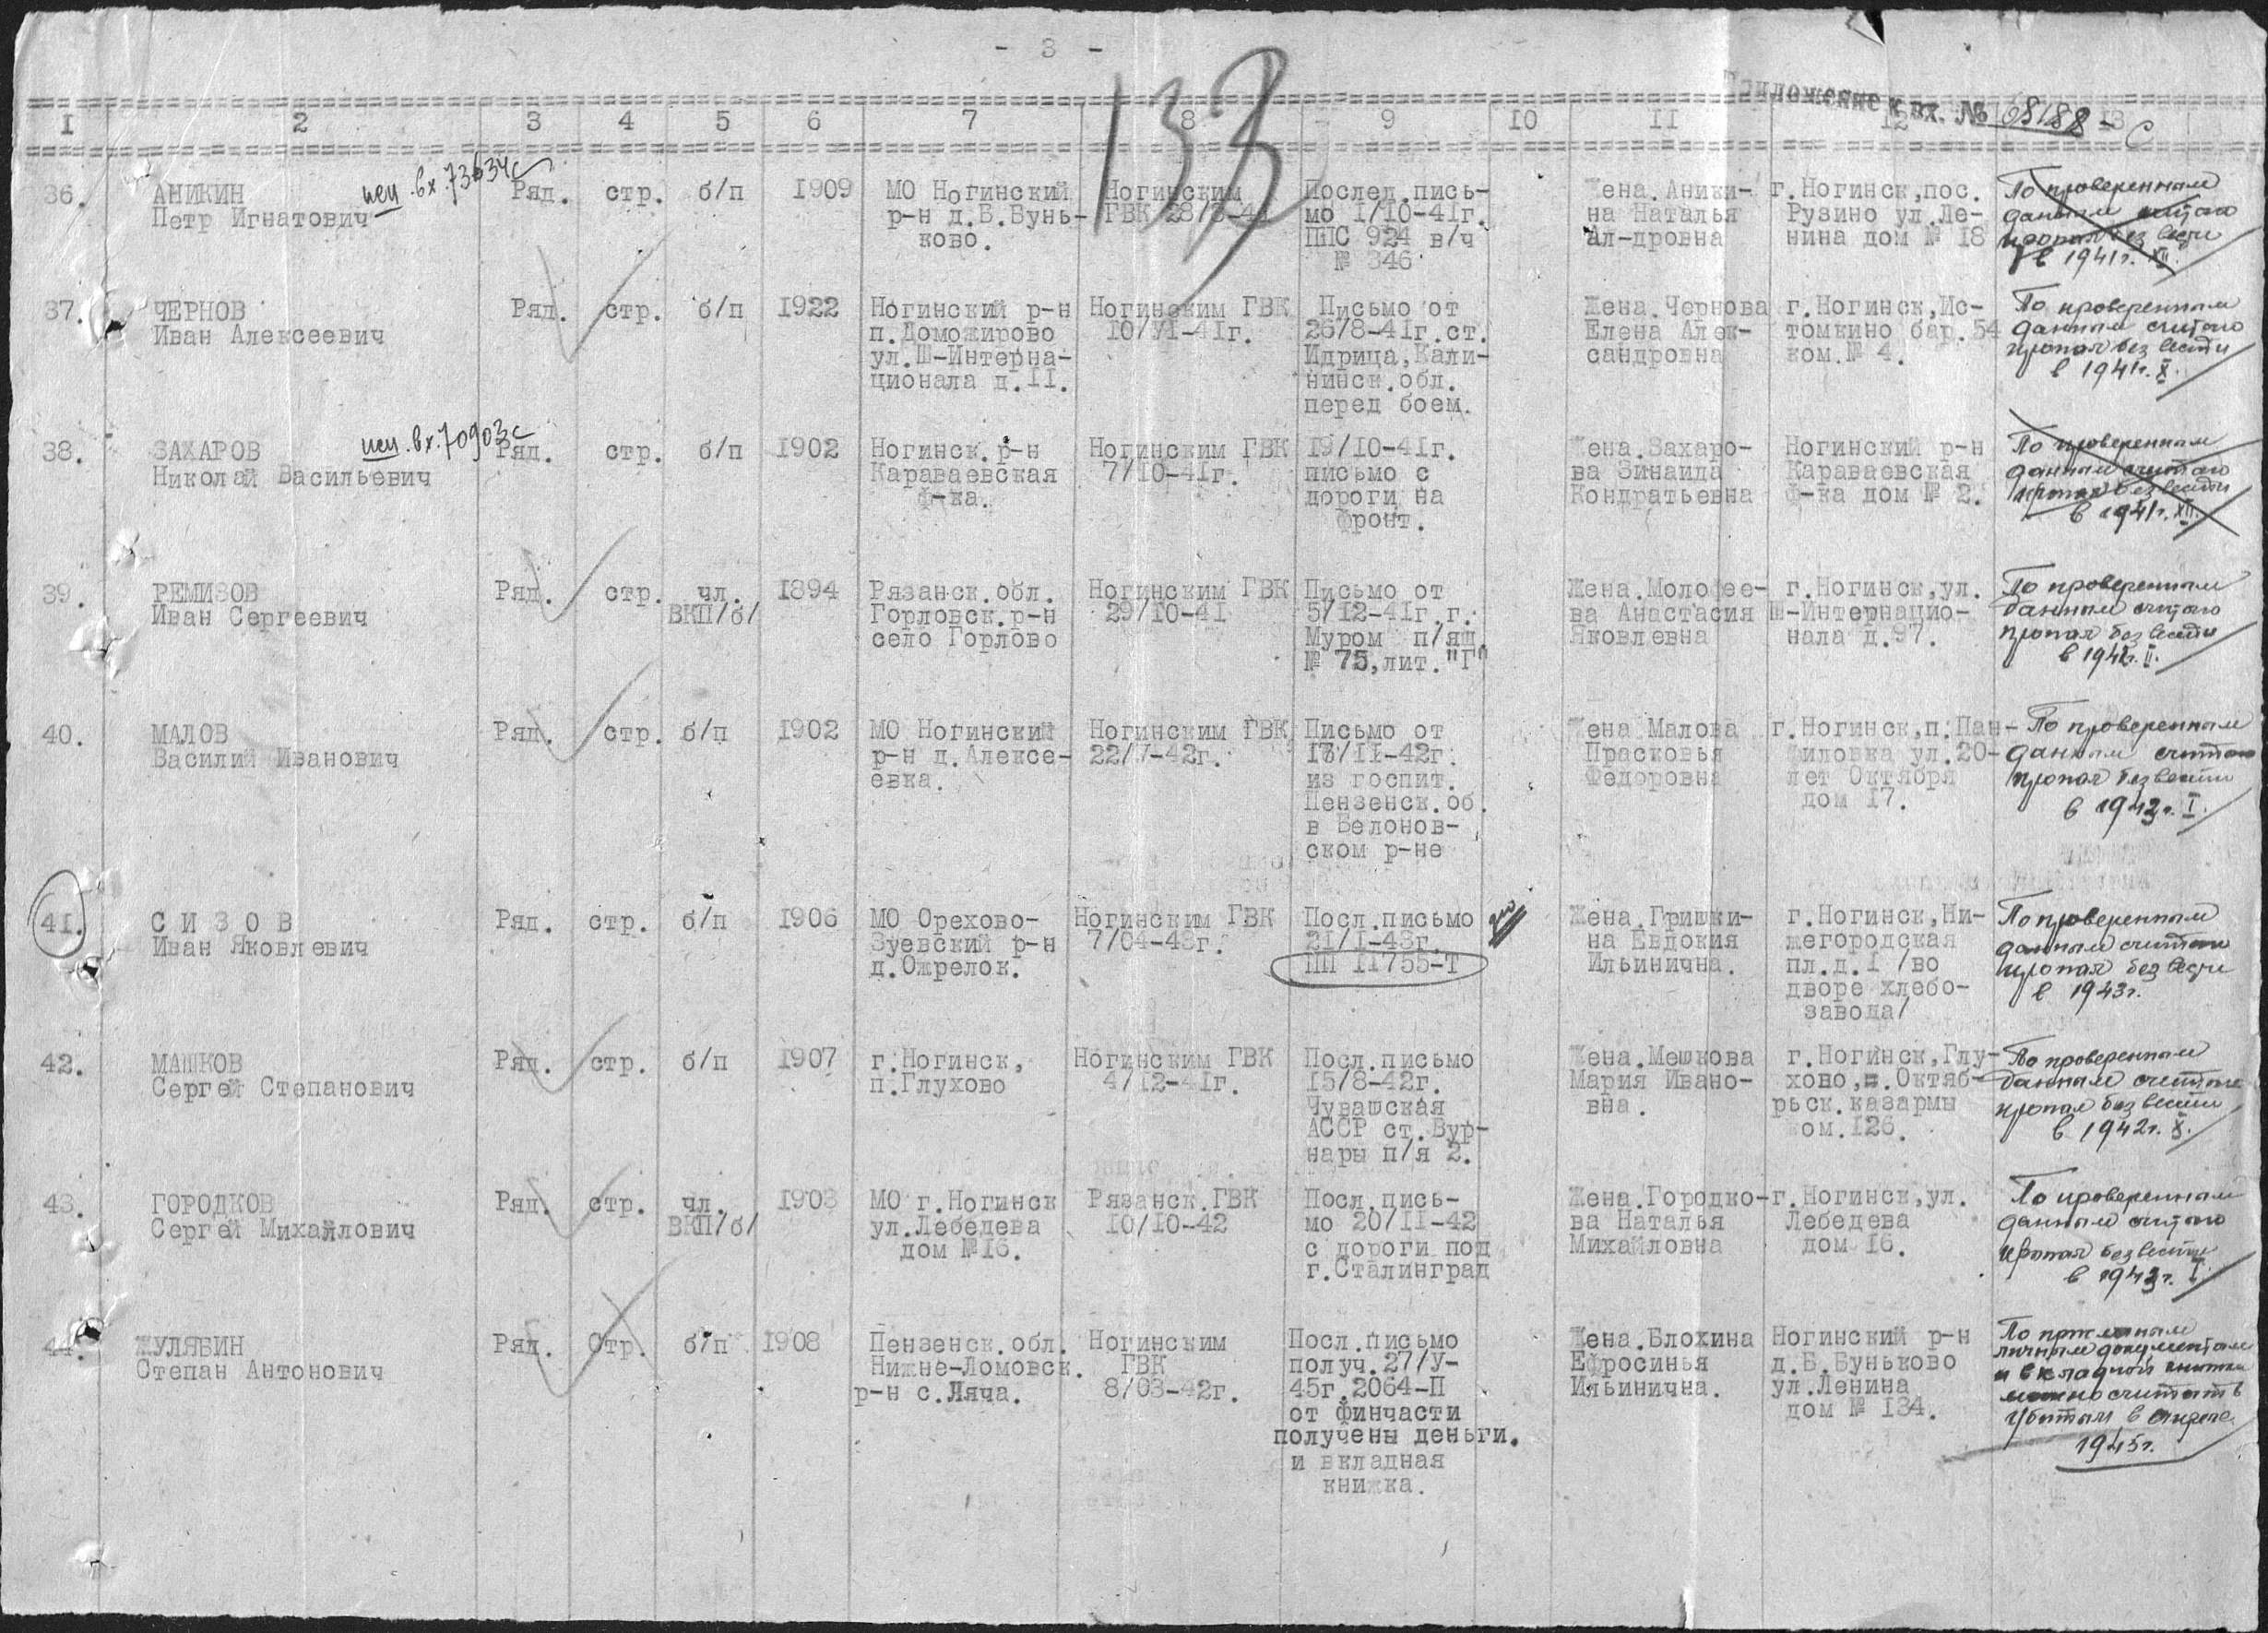 - 3 -
133
Приложение к вх. № 08188-с
1 2 3 4 5 6 7 8 9 10 11 12 13
36.
АНИКИН
Петр Игнатович
исп. вх. 73634с
Ряд.
стр.
б/п
1909
МО Ногинский
р-н д.Б.Бунь-
ково.
Ногинским
ГВК 28/8-41
Послед.пись-
мо 1/10-41г.
ППС 924 в/ч
№ 346
Жена.Аники-
на Наталья
Ал-дровна
г.Ногинск,пос.
Рузино ул.Ле-
нина дом № 18
По проверенным
данным считаю
пропал без вести
в 1941г. XII.
37.
ЧЕРНОВ
Иван Алексеевич
Ряд.
стр.
б/п
1922
Ногинский р-н
п.Доможирово
ул.Ш-Интерна-
ционала д.II.
Ногинским ГВК
10/У1-41г.
Письмо от
26/8-41г.ст.
Идрица,Кали-
нинск.обл.
перед боем.
Жена.Чернова
Елена Алек-
сандровна
г.Ногинск,Ис-
томкино бар.54
ком.№ 4.
По проверенным
данным считаю
пропал без вести
в 1941г. X.
38.
ЗАХАРОВ
Николай Васильевич
исп. вх. 70903с
Ряд.
стр.
б/п
1902
Ногинск.р-н
Караваевская
ф-ка.
Ногинским ГВК
7/10-41г.
19/10-41г.
письмо с
дороги на
фронт.
Жена.Захаро-
ва Зинаида
Кондратьевна
Ногинский р-н
Караваевская
ф-ка дом № 2.
По проверенным
данным считаю
пропал без вести
в 1941г. XII.
39.
РЕМИЗОВ
Иван Сергеевич
Ряд.
стр.
чл.
ВКП/б/
1894
Рязанск.обл.
Горловск.р-н
село Горлово
Ногинским ГВК
29/10-41
Письмо от
5/12-41г.г.
Муром п/ящ.
№ 75,лит."Г"
Жена.Молофее-
ва Анастасия
Яковлевна
г.Ногинск,ул.
Ш-Интернацио-
нала д.97.
По проверенным
данным считаю
пропал без вести
в 1942г. II.
40.
МАЛОВ
Василий Иванович
Ряд.
стр.
б/п
1902
МО Ногинский
р-н д.Алексе-
евка.
Ногинским ГВК
22/У-42г.
Письмо от
18/11-42г.
из госпит.
Пензенск.об.
в Белонов-
ском р-не
Жена Малова
Прасковья
Федоровна
г.Ногинск,п.Пан-
филовка ул.20-
лет Октября
дом 17.
По проверенным
данным считаю
пропал без вести
в 1943г. I.
41.
С И З О В
Иван Яковлевич
Ряд.
стр.
б/п
1906
МО Орехово-
Зуевский р-н
д.Ожрелок.
Ногинским ГВК
7/04-43г.
Посл.письмо
21/I-43г.
ПП 11755-Т
Жена.Гришки-
на Евдокия
Ильинична.
г.Ногинск,Ни-
жегородская
пл.д.I /во
дворе хлебо-
завода/
По проверенным
данным считаю
пропал без вести
в 1943г.
42.
МАШКОВ
Сергей Степанович
Ряд.
стр.
б/п
1907
г.Ногинск,
п.Глухово
Ногинским ГВК
4/12-41г.
Посл.письмо
15/8-42г.
Чувашская
АССР ст.Вур-
нары п/я 2.
Жена.Мешкова
Мария Ивано-
вна.
г.Ногинск,Глу-
хово,п.Октяб-
рьск.казармы
ком.126.
По проверенным
данным считаю
пропал без вести
в 1942г. X.
43.
ГОРОДКОВ
Сергей Михайлович
Ряд.
стр.
чл.
ВКП/б/
1903
МО г.Ногинск
ул.Лебедева
дом №16.
Рязанск.ГВК
10/10-42
Посл.пись-
мо 20/11-42
с дороги под
г.Сталинград
Жена.Городко-
ва Наталья
Михайловна
г.Ногинск,ул.
Лебедева
дом 16.
По проверенным
данным считаю
пропал без вести
в 1943г. I.
44.
ЖУЛЯБИН
Степан Антонович
Ряд.
Стр.
б/п
1908
Пензенск.обл.
Нижне-Ломовск.
р-н с.Ляча.
Ногинским
ГВК
8/03-42г.
Посл.письмо
получ.27/У-
45г.2064-П
от финчасти
получены деньги.
и вкладная
книжка.
Жена.Блохина
Ефросинья
Ильинична.
Ногинский р-н
д.Б.Буньково
ул.Ленина
дом № 134.
По
личным документам
и вкладной книжки
можно считать
убитым в апреле
1945г.